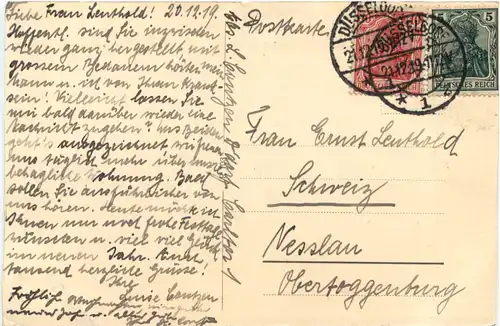 Liebe Frau Leuthold! 20.12.19.
Hoffentl. sind Sie inzwischen
wieder ganz hergestellt mit
grossem Bedauern hörten mein
Mann u. ich von Ihrem Krank-
sein! Vielleicht lassen Sie
uns bald darüber wieder eine
Nachricht zugehen? uns Beiden
geht's ausgezeichnet wir freuen
uns täglich mehr über unsere
behagliche Wohnung. Bald
sollen Sie ausführlicher von
uns hören. Heute möcht ich
Ihnen nur noch frohe Festtage
wünschen u. viel viel Glück
im neuen Jahr. Auch
tausend herzliche Grüsse!
Fröhlich
Luise
neues Jahr u. alles Gute
Postkarte
DÜSSELDORF
21.12.19
1
5 5
DEUTSCHES REICH
Frau Ernst Leuthold
Schweiz
Nesslau
Obertoggenburg